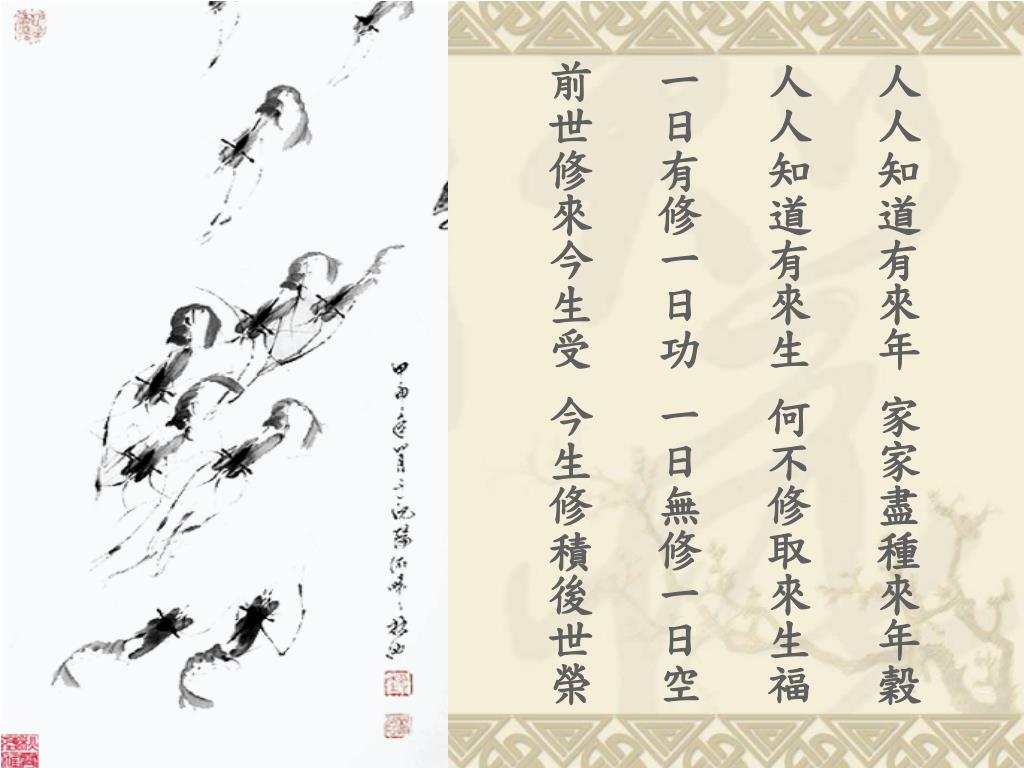 人人知道有來年 家家盡種來年穀
人人知道有來生 何不修取來生福
一日有修一日功 一日無修一日空
前世修來今生受 今生修積後世榮